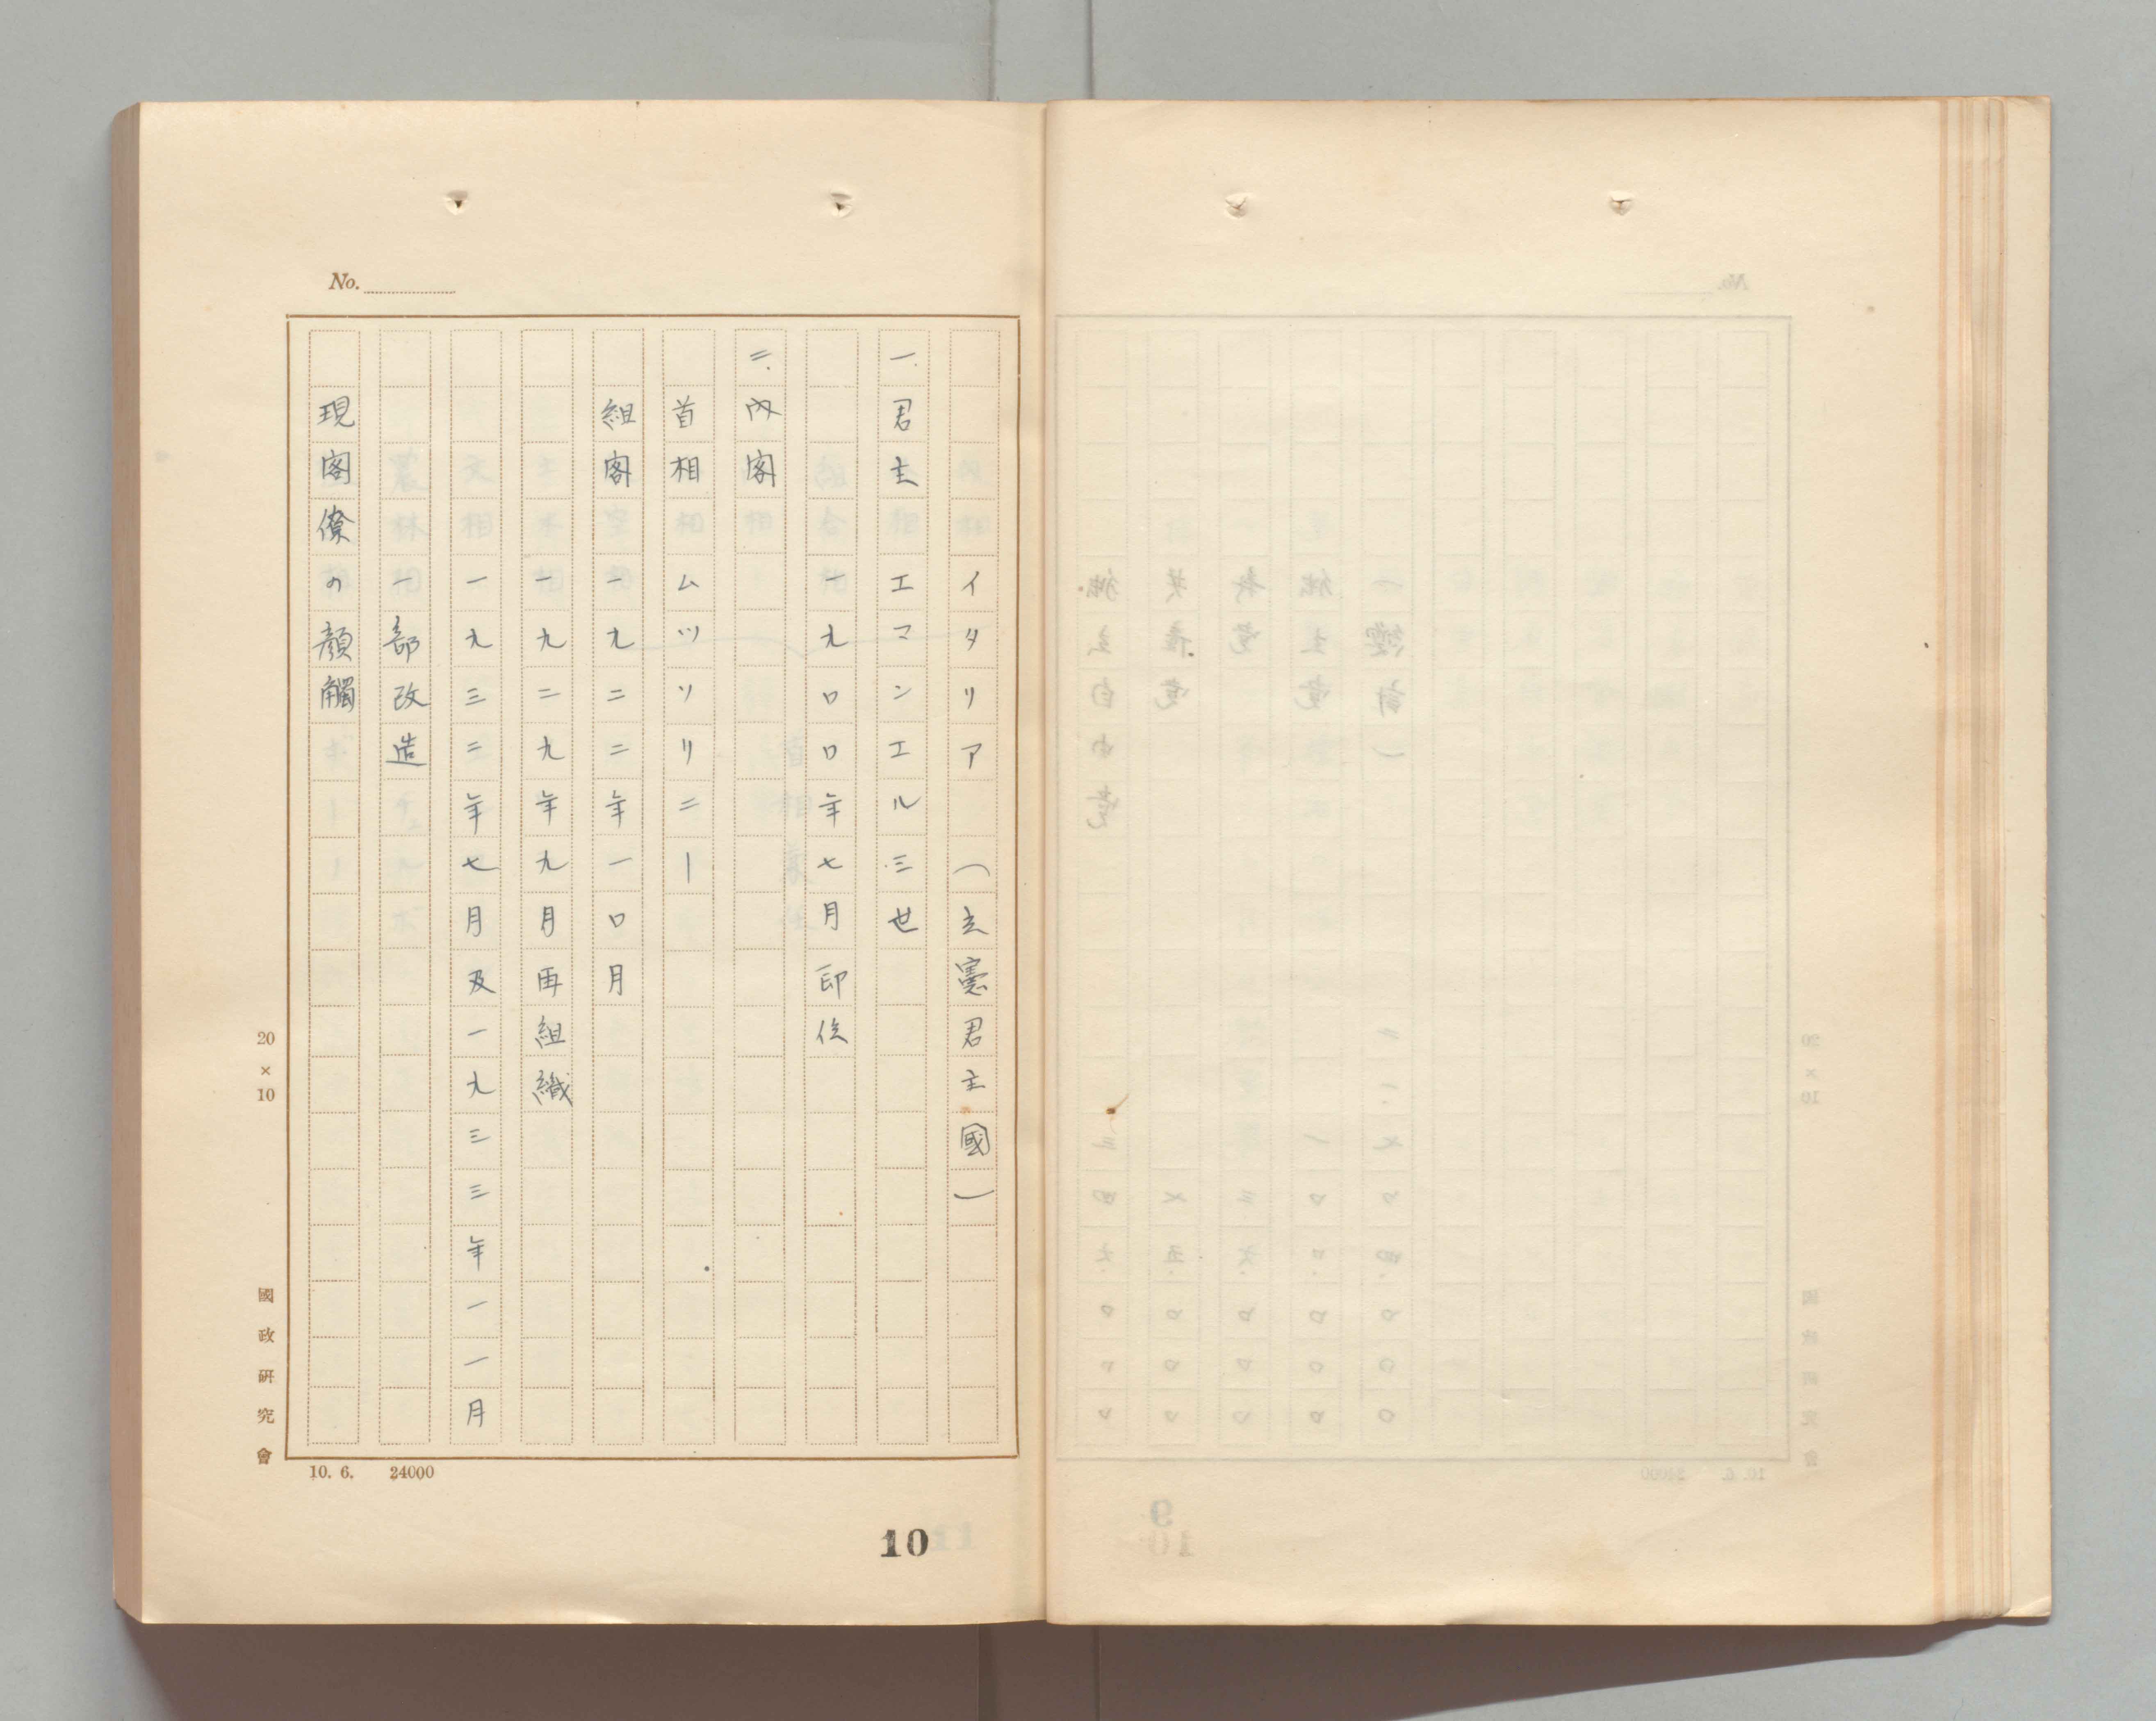 No.
イタリア　（立憲君主國）
一.君主　エマンエル三世
一九〇〇年七月即位
二.内閣
首相　ムツソリニー
組閣　一九二二年一〇月
一九二九年九月再組織
一九三二年七月及一九三三年一一月
一部改造
現閣僚の顔觸
20×10
國政研究會
10. 6.　24000
10